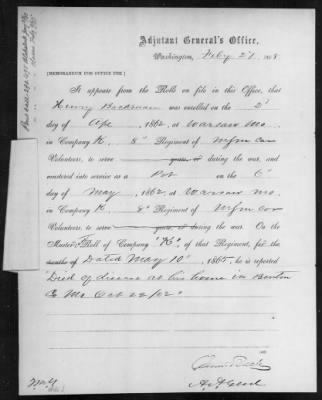 Adjutant General's Office,
Washington, Feby 27, 1868
[MEMORANDUM FOR OFFICE USE.]
It appears from the Rolls on file in this Office, that
Henry was enrolled on the 2d
day of Apr, 1862, at Warsaw Mo.
in Company K, 8" Regiment of Mfm Cav
Volunteers, to serve years, or during the war, and
mustered into service as a Pvt on the 6"
day of May, 1862, at Warsaw Mo.
in Company K, 8" Regiment of Mfm Cav
Volunteers, to serve years, or during the war. On
the Muster Roll of Company "K", of that Regiment, for the
months of Dated May 10", 1865, he is reported
"Died of disease at his home in Benton
Co Mo Oct 22/62"